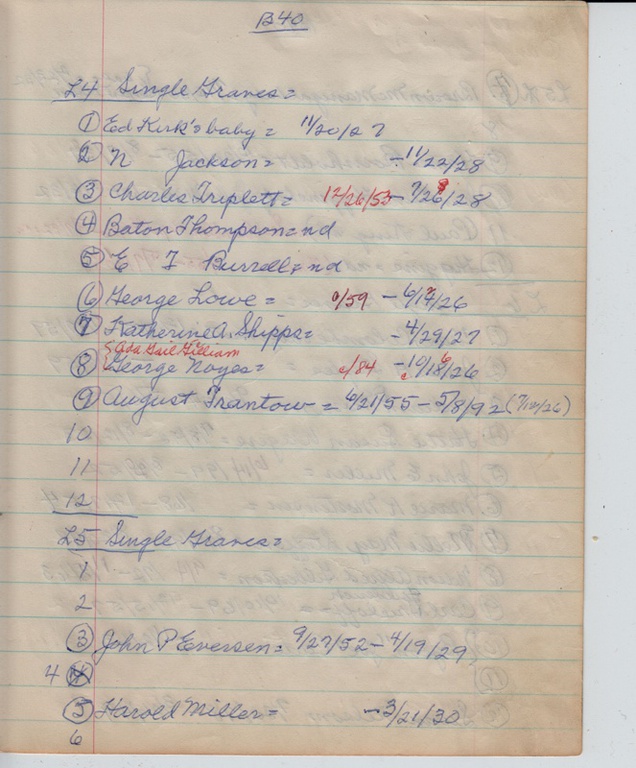 B40
L4 Single Graves=
① Ed Kirk's baby = 11/20/27
② N Jackson= -11/22/28
③ Charles Triplett= 12/26/53- 7/26/28
④ Baton Thompson=nd
⑤ E I Burrell=nd
⑥ George Lowe = c/59 - 6/14/26
⑦ Katherine A. Shipps= -4/29/27
Ada Gail Gilliam
⑧ George Noyes= c/84 -10/18/26
⑨ August Trantow = 6/21/55-5/8/92 (7/10/26)
10
11
12
L5 Single Graves=
1
2
③ John P Eversen= 9/27/52- 4/19/29
4 ④
⑤ Harold Miller= -3/21/30
6